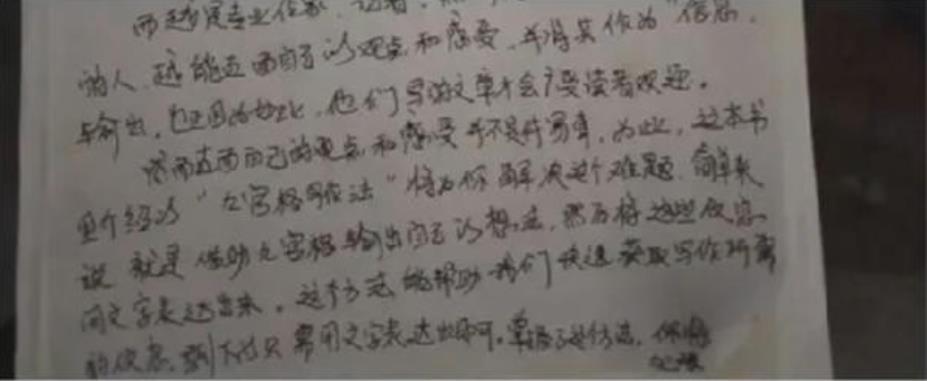 而越是专业作家、记者、
的人,越能直面自己的观点和感受,并将其作为“信息”
输出,也正因为如此,他们写的文章才会广受读者欢迎。
然而直面自己的观点和感受并不是件易事,为此,这本书
里介绍的“九宫格写作法”将为你解决这个难题,简单来
说就是借助九宫格输出自己的想法,然后将这些信息
用文字表达出来。这个方法能帮助我们快速获取写作所需
的信息,剩下的只需用文字表达出即可。掌握了这个方法,你将